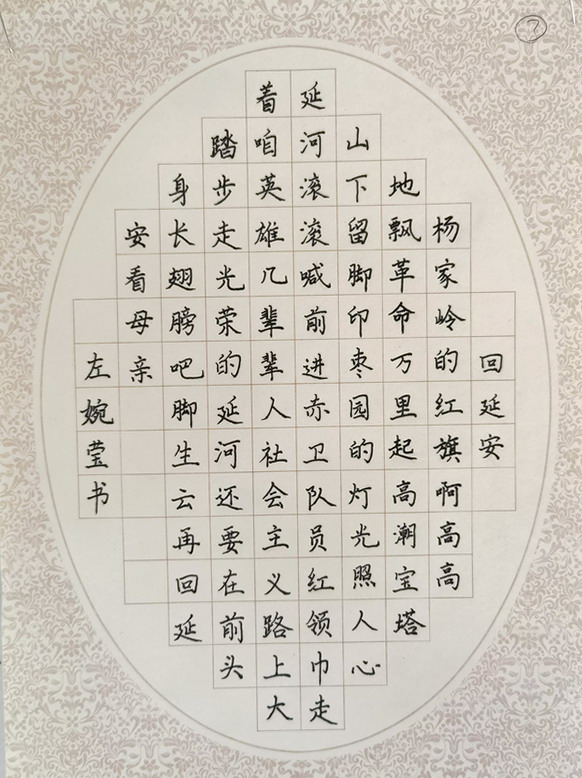 回延安
杨家岭的红旗啊高高
地飘革命万里起高潮宝塔
山下留脚印枣园的灯光照人心
延河滚滚喊前进赤卫队员红领巾走
着咱英雄几辈辈人社会主义路上大
踏步走光荣的延河还要在前头
身长翅膀吧脚生云再回延
安看母亲
左婉莹书